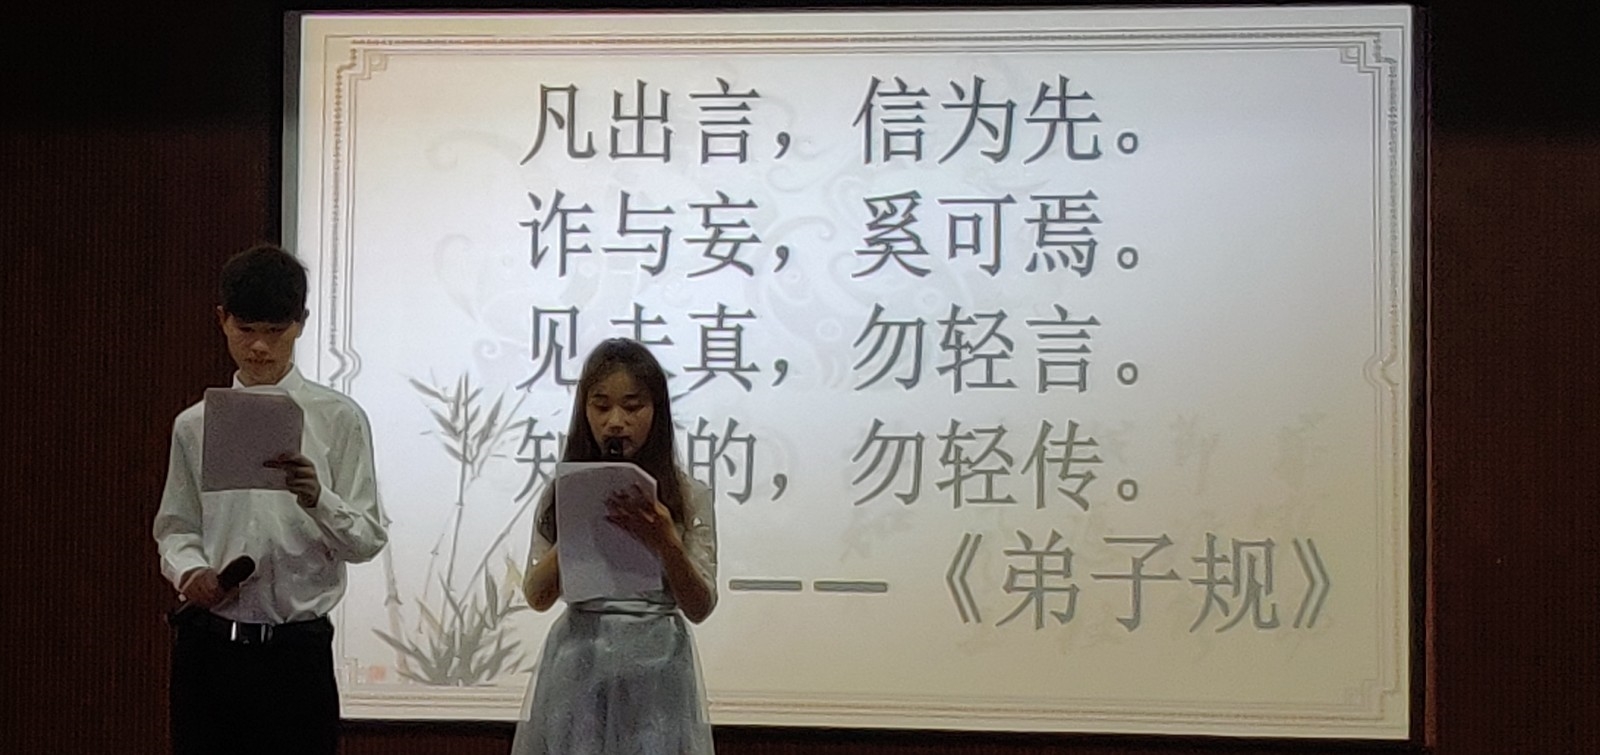 凡出言，信为先。
诈与妄，奚可焉。
见未真，勿轻言。
知的，勿轻传。
——《弟子规》